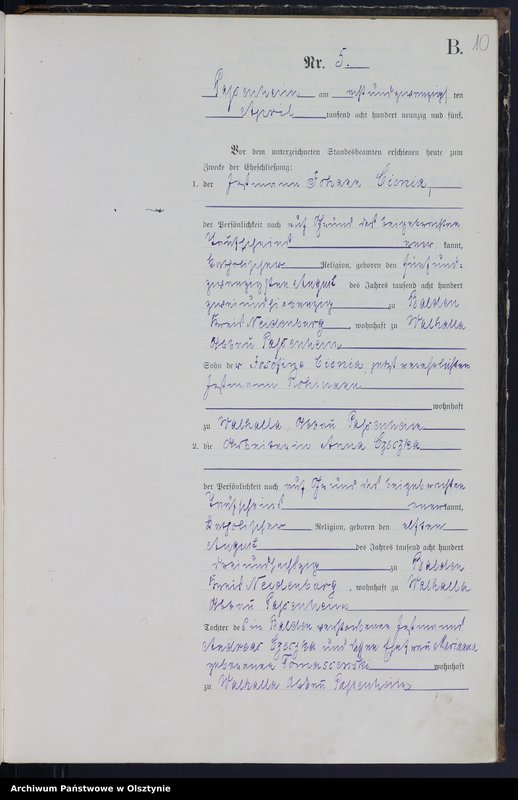 B. 10
Nr. 5.
Passenheim am achtundzwanzigs ten
April tausend acht hundert neunzig und fünf.
Vor dem unterzeichneten Standesbeamten erschienen heute zum
Zwecke der Eheschließung:
1. der Instmann Johann Cionia,
der Persönlichkeit nach auf Grund des beigebrachten
Taufscheins aner kannt,
katholischer Religion, geboren den fünfund-
zwanzigsten August des Jahres tausend acht hundert
zweiundsiebenzig zu Balden
Kreis Neidenburg, wohnhaft zu Walhalla
Abbau Passenheim
Sohn der Josefine Cionia, jetzt verehelichten
Instmann
wohnhaft
zu Walhalla, Abbau Passenheim
2. die Arbeiterin Anna Czeczka
der Persönlichkeit nach auf Grund des beigebrachten
Taufscheins anerkannt,
katholischer Religion, geboren den elften
August des Jahres tausend acht hundert
dreiundsechzig zu Balden
Kreis Neidenburg, wohnhaft zu Walhalla
Abbau Passenheim
Tochter des in Balden verstorbenen Instmanns
Andreas Czeczka und Ehefrau Marianna
geborenen wohnhaft
zu Walhalla Abbau Passenheim
Archiwum Państwowe w Olsztynie